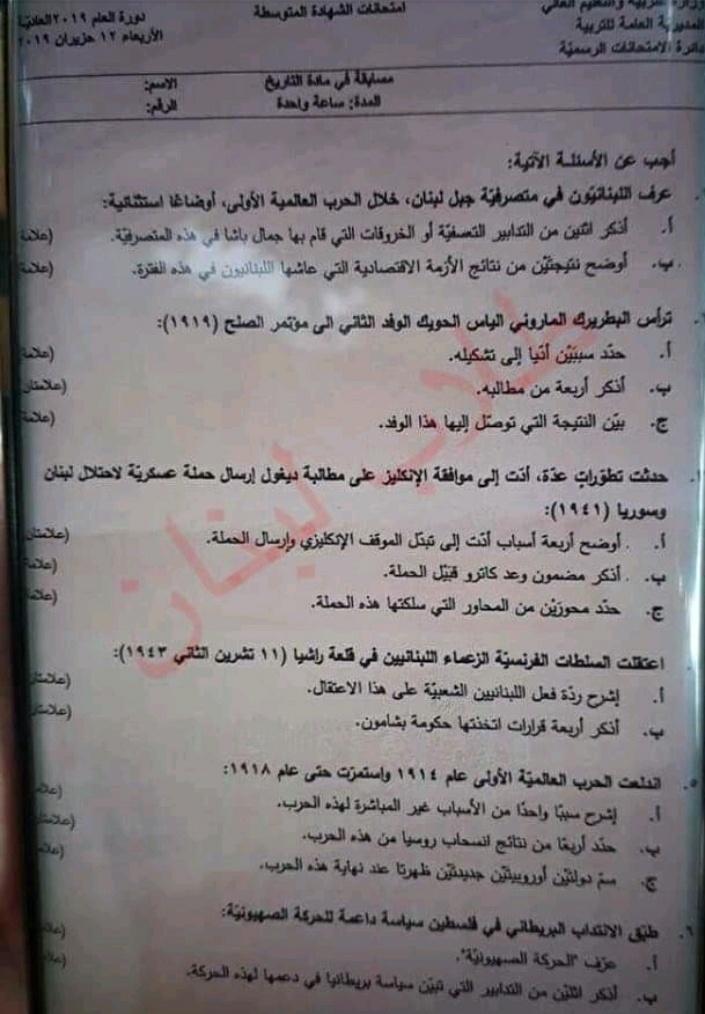 وزارة التربية والتعليم العالي
المديرية العامة للتربية
دائرة الامتحانات الرسميّة
امتحانات الشهادة المتوسطة
دورة العام ٢٠١٩ العاديّة
الأربعاء ١٢ حزيران ٢٠١٩
مسابقة في مادة التاريخ
المدة: ساعة واحدة
الاسم:
الرقم:
أجب عن الأسئلة الآتية:
عرف اللبنانيّون في متصرفيّة جبل لبنان، خلال الحرب العالمية الأولى، أوضاعًا استثنائية:
أ. أذكر اثنين من التدابير التعسفيّة أو الخروقات التي قام بها جمال باشا في هذه المتصرفيّة. (علامة
ب. أوضح نتيجتيْن من نتائج الأزمة الاقتصادية التي عاشها اللبنانيون في هذه الفترة. (علامة
ترأس البطريرك الماروني الياس الحويك الوفد الثاني الى مؤتمر الصلح (١٩١٩):
أ. حدّد سببَيْن أدّيا إلى تشكيله. (علامة
ب. أذكر أربعة من مطالبه. (علامتان
ج. بيّن النتيجة التي توصّل إليها هذا الوفد. (علامة
حدثت تطوّرات عدّة، أدّت إلى موافقة الإنكليز على مطالبة ديغول إرسال حملة عسكريّة لاحتلال لبنان
وسوريا (١٩٤١):
أ. أوضح أربعة أسباب أدّت إلى تبدّل الموقف الإنكليزي وإرسال الحملة. (علامتان
ب. أذكر مضمون وعد كاترو قبيْل الحملة. (علامة
ج. حدّد محورَيْن من المحاور التي سلكتها هذه الحملة. (علامة
اعتقلت السلطات الفرنسيّة الزعماء اللبنانيين في قلعة راشيا (١١ تشرين الثاني ١٩٤٣):
أ. إشرح ردّة فعل اللبنانيين الشعبيّة على هذا الاعتقال. (علامتان
ب. أذكر أربعة قرارات اتخذتها حكومة بشامون. (علامتان
٥. اندلعت الحرب العالميّة الأولى عام ١٩١٤ واستمرّت حتى عام ١٩١٨:
أ. إشرح سببًا واحدًا من الأسباب غير المباشرة لهذه الحرب. (علامة
ب. حدّد أربعًا من نتائج انسحاب روسيا من هذه الحرب. (علامتان
ج. سمّ دولتيْن أوروبيتيْن جديدتيْن ظهرتا عند نهاية هذه الحرب. (علامة
٦. طبّق الانتداب البريطاني في فلسطين سياسة داعمة للحركة الصهيونيّة:
أ. عرّف "الحركة الصهيونيّة".
ب. أذكر اثنيْن من التدابير التي تبيّن سياسة بريطانيا في دعمها لهذه الحركة.
طلاب لبنان